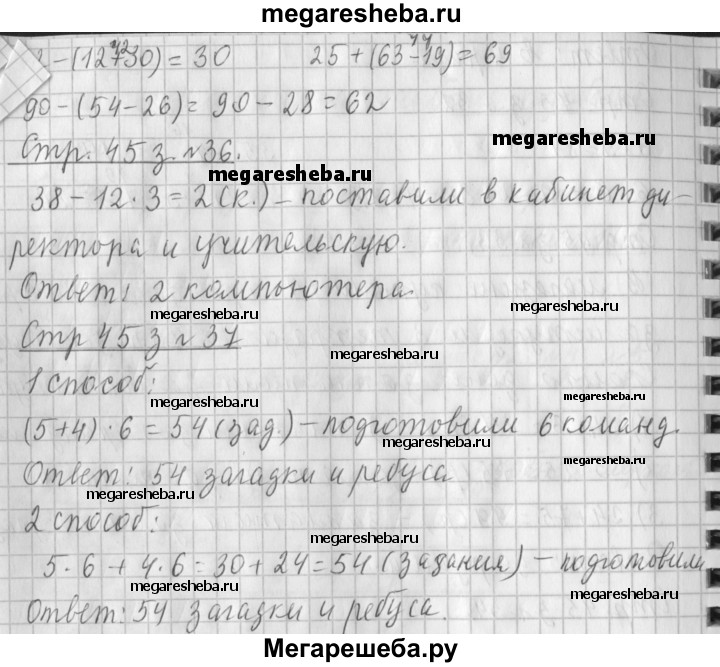 megaresheba.ru
- (12+30) = 30 25 + (63-19) = 69
42 44
90 - (54-26) = 90 - 28 = 62
megaresheba.ru
Стр. 45 з. №36.
megaresheba.ru
38 - 12 · 3 = 2 (к.) - поставили в кабинет ди-
ректора и учительскую.
Ответ: 2 компьютера.
megaresheba.ru megaresheba.ru
Стр 45 з № 37
megaresheba.ru
1 способ:
megaresheba.ru megaresheba.ru
(5+4) · 6 = 54 (зад.) - подготовили 6 команд.
megaresheba.ru
Ответ: 54 загадки и ребуса
megaresheba.ru
2 способ:
megaresheba.ru
5 · 6 + 4 · 6 = 30 + 24 = 54 (задания) - подготовили
megaresheba.ru megaresheba.ru
Ответ: 54 загадки и ребуса.
Мегарешеба.ру